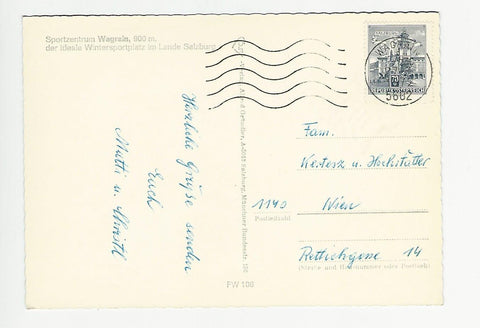 Sportzentrum Wagrain, 900 m.
der ideale Wintersportplatz im Lande Salzburg
Herzliche Grüße senden
Euch
Mutti u. Christl
Salzburg, Münchner Bundesstr. 190
PW 100
WAGRAIN
5602
REPUBLIK ÖSTERREICH
Fam.
Kertesz u. Hochstätter
1140 Wien
Postleitzahl
Rettichgasse 14
(Straße und Hausnummer oder Postfach)